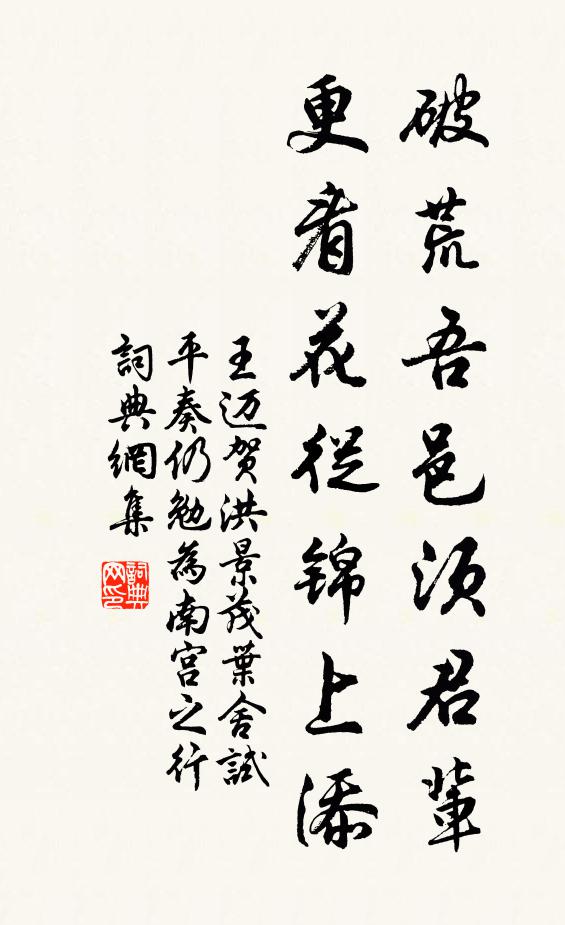 破荒吾邑須君輩
更看花從錦上添
王迈賀洪景茂葉舍試
平奏仍勉為南宫之行
詞典網集
詞典网印